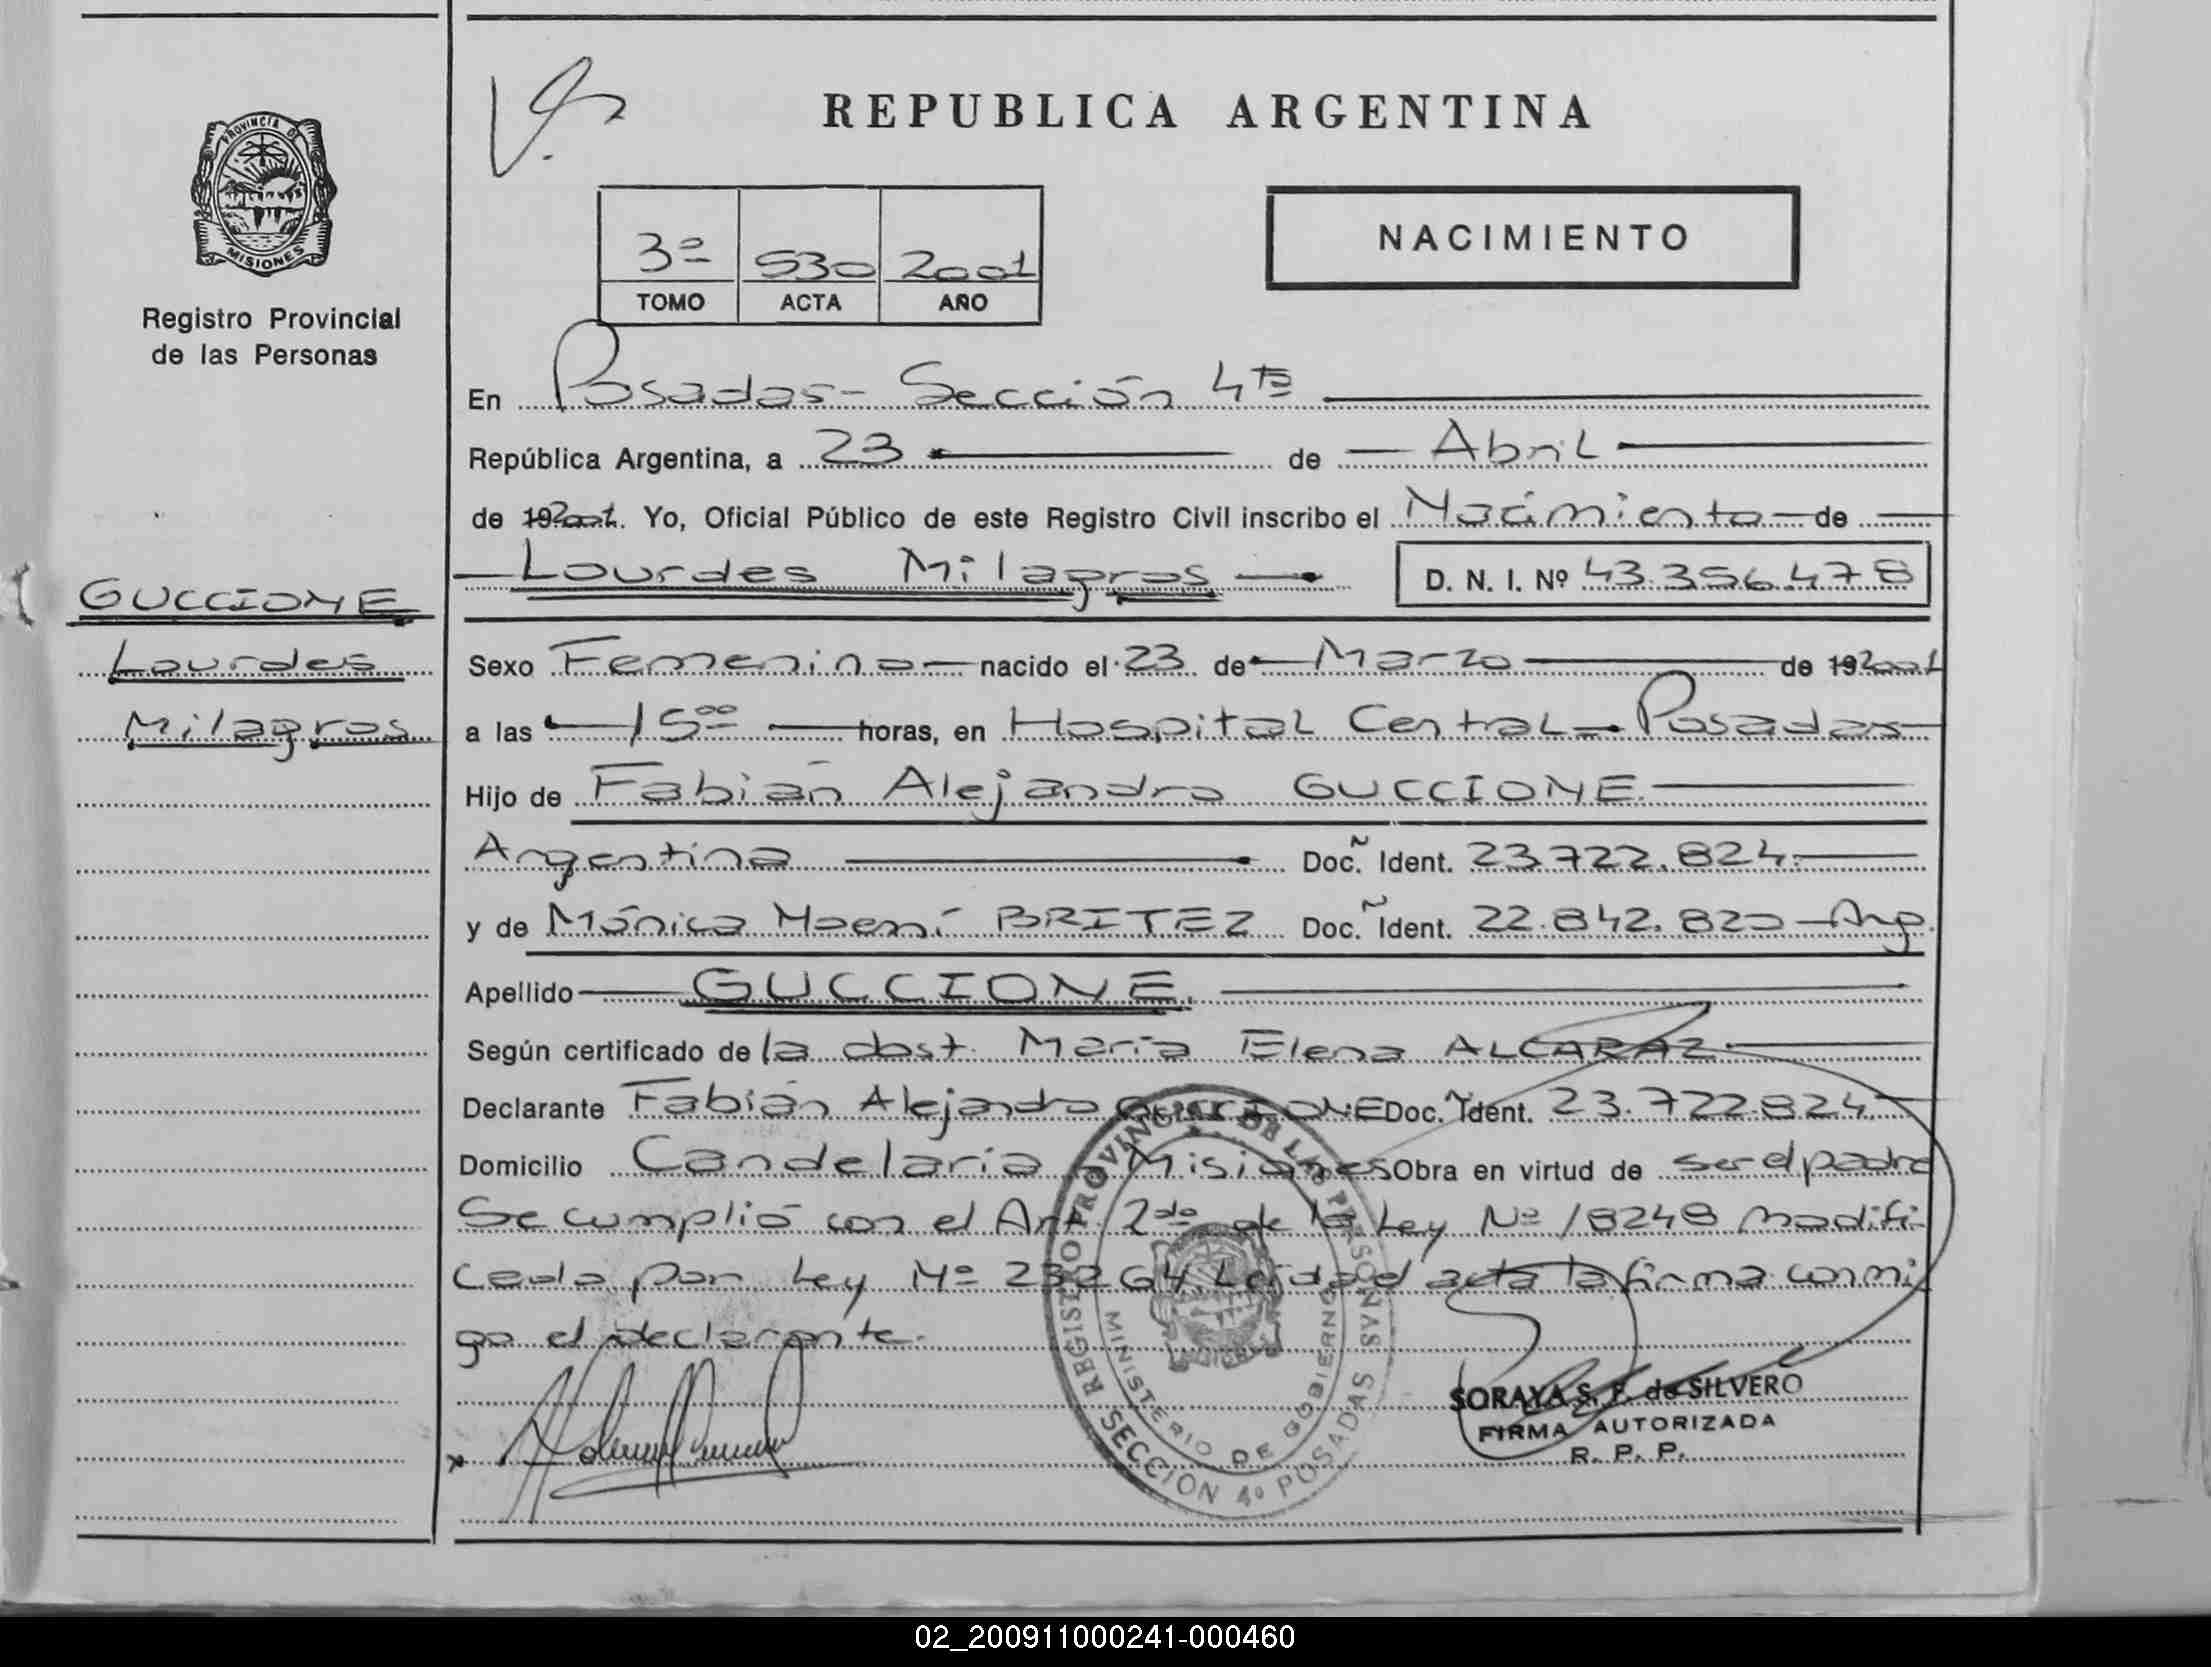 REPUBLICA ARGENTINA
PROVINCIA DE
MISIONES
Registro Provincial
de las Personas
GUCCIONE
Lourdes
Milagros
3º 530 2001
TOMO ACTA AÑO
NACIMIENTO
En Posadas - Sección 4ta
República Argentina, a 23 de Abril
de 192001. Yo, Oficial Público de este Registro Civil inscribo el Nacimiento de
Lourdes Milagros D. N. I. Nº 43.356.478
Sexo Femenino nacido el 23 de Marzo de 192001
a las 15 00 horas, en Hospital Central - Posadas
Hijo de Fabián Alejandro GUCCIONE
Argentina Doc. Ident. 23.722.824
y de Mónica Noemí BRITEZ Doc. Ident. 22.842.820 - Arg.
Apellido GUCCIONE
Según certificado de la obst. María Elena ALCARAZ
Declarante Fabián Alejandro GUCCIONE Doc. Ident. 23.722.824
Domicilio Candelaria Misiones Obra en virtud de ser el padre
Se cumplió con el Art. 2do de la Ley Nº 18248 modifi-
cada por Ley Nº 23264 Leida el acta la firma conmi
go el declarante.
REGISTRO PROVINCIAL DE LAS PERSONAS
MINISTERIO DE GOBIERNO
SECCION 4º POSADAS
SORAYA S. F. de SILVERO
FIRMA AUTORIZADA
R. P. P.
02_200911000241-000460